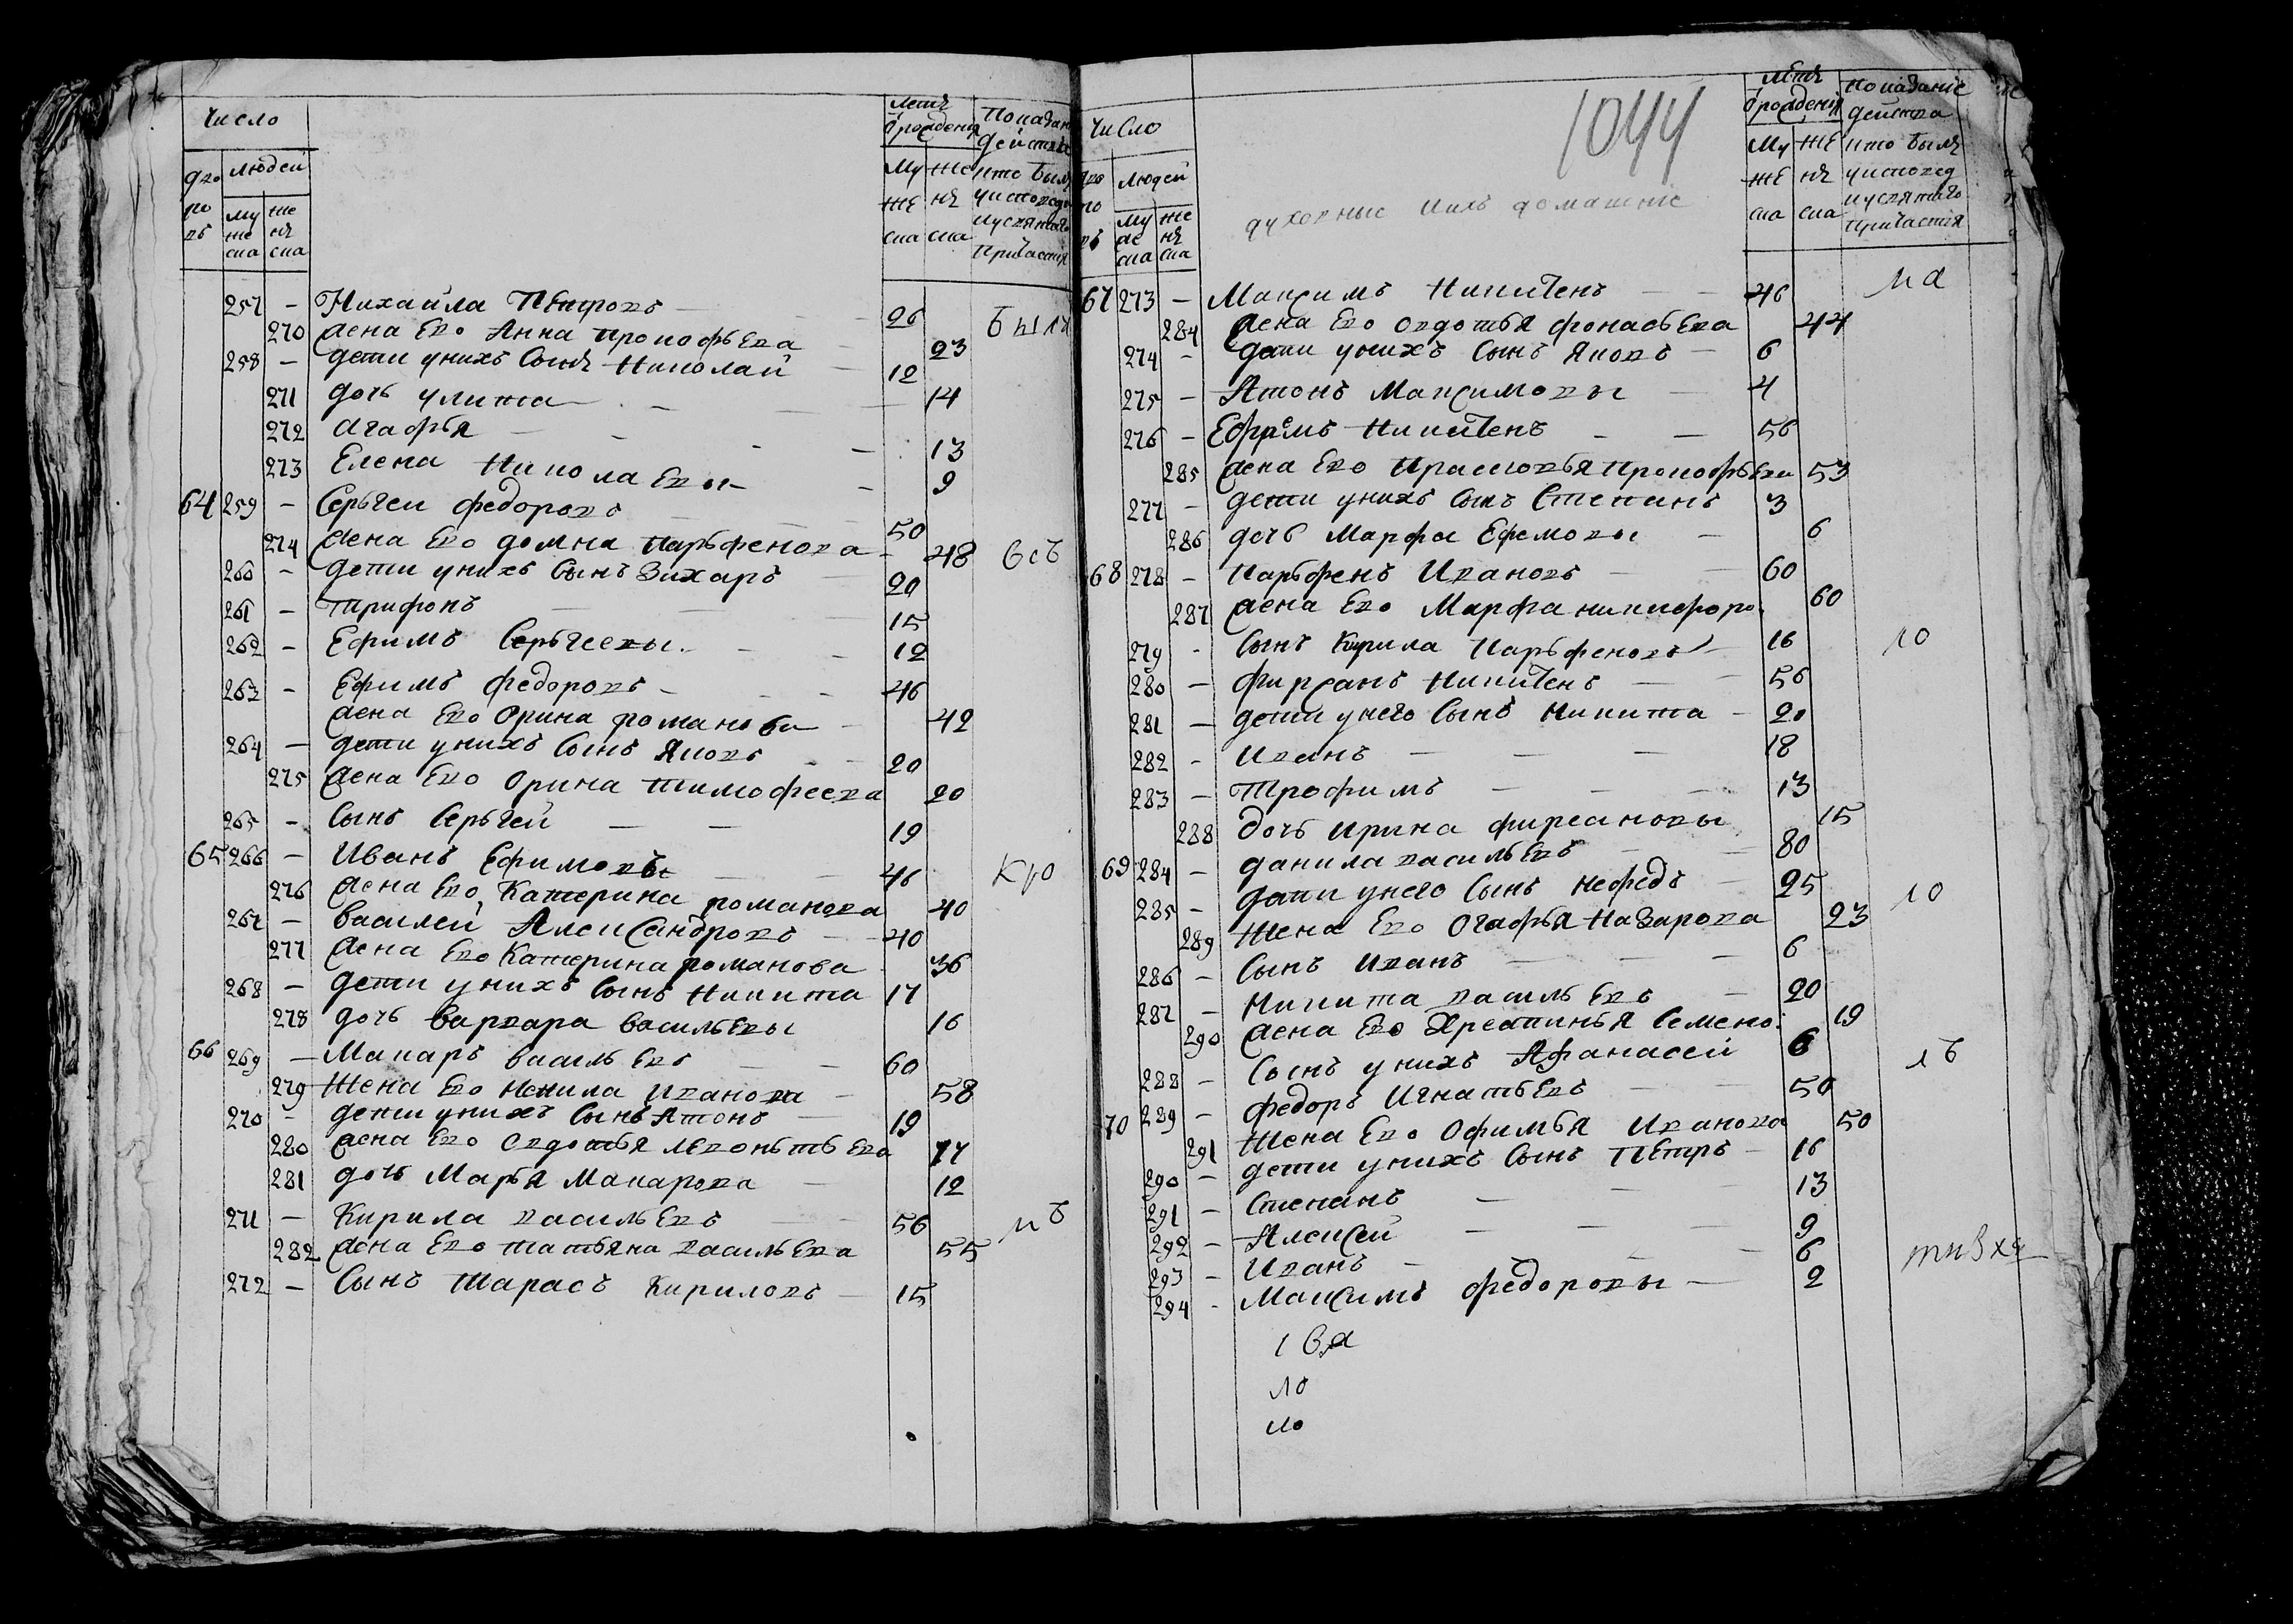 Число
дво ро въ
людей
му же ска
же нъ ска
летъ ѿ рожденія
му же ска
же нъ ска
Показан действа
кто былъ уисповеди исвятаго причастія
257 — Михаила Петровъ — 26 были
270 жена Ево Анна прокофьева — 23
258 — дети унихъ сынъ Николай — 12
271 дочь улита — 14
272 агафья — 13
273 Елена Николаевы — 9
64 259 — Серьгеи федоровъ 50
274 жена Ево домна парьфенова — 48 всѣ
260 — дети унихъ сынъ Захаръ 20
261 — трифонъ 15
262 — Ефимъ Серьгеевы — 12
263 — Ефимъ федоровъ — 46
жена Ево Орина романова — 42
264 — дети унихъ сынъ Яковъ 20
275 жена Ево Орина тимофеева 20
265 — сынъ Серьгей — 19
65 266 — Иванъ Ефимовъ 46 кро
276 жена Ево Катерина романова 40
267 — василей Александровъ — 40
277 жена Ево Катерина романова 36
268 — дети унихъ сынъ Никита 17
278 дочь варвара васильевы 16
66 269 — Макаръ васильевъ 60
279 жена Ево Ненила Иванова — 58
270 — дети унихъ сынъ Антонъ — 19
280 жена Ево Овдотья леоньтьева 17
281 дочь Марья Макарова — 12
271 — Кирила васильевъ 56 мѣ
282 жена Ево татьяна васильева 55
272 — сынъ тарасъ кириловъ — 15
Число
дво ро въ
людей
му же ска
же нъ ска
1044
духовные иихъ домашніе
летъ ѿ рожденія
му же ска
же нъ ска
показаніе действа
кто былъ уисповед исвятаго причастія
67 273 — Максимъ Никитенъ — 46 на
284 жена Ево овдотья фонасьева 44
274 — дети унихъ сынъ Яковъ — 6
275 — Антонъ Максимовы 4
276 — Ефремъ Никитенъ — 56
285 жена Ево Прасковья прокофьева 53
277 — дети унихъ сынъ Степанъ 3
286 дочь Марфа Ефемовы — 6
68 278 — парьфенъ Ивановъ 60
287 жена Ево Марфа никифоро 60
279 — сынъ кирила парьфеновъ — 16 ло
280 — фирсанъ Никитенъ — 56
281 — дети унего сынъ никита — 20
282 — Иванъ — 18
283 — трофимъ — 13
288 дочь ирина фирсановы 15
69 284 — данила васильевъ — 80
285 — дети унего сынъ нефедъ — 25 ло
289 жена Ево огафья назарова 23
286 — сынъ иванъ — 6
287 — никита васильевъ — 20
290 жена Ево Хрестинья семено. 19
288 — сынъ унихъ Афанасей 6 лѣ
70 289 — федоръ Игнатьевъ 50
291 жена Ево Офимья Иванова 50
290 — дети унихъ сынъ Петръ — 16
291 — степанъ — 13
292 — Алексей — 9
293 — Иванъ — 6
294 — Максимъ федоровы — 2
ло